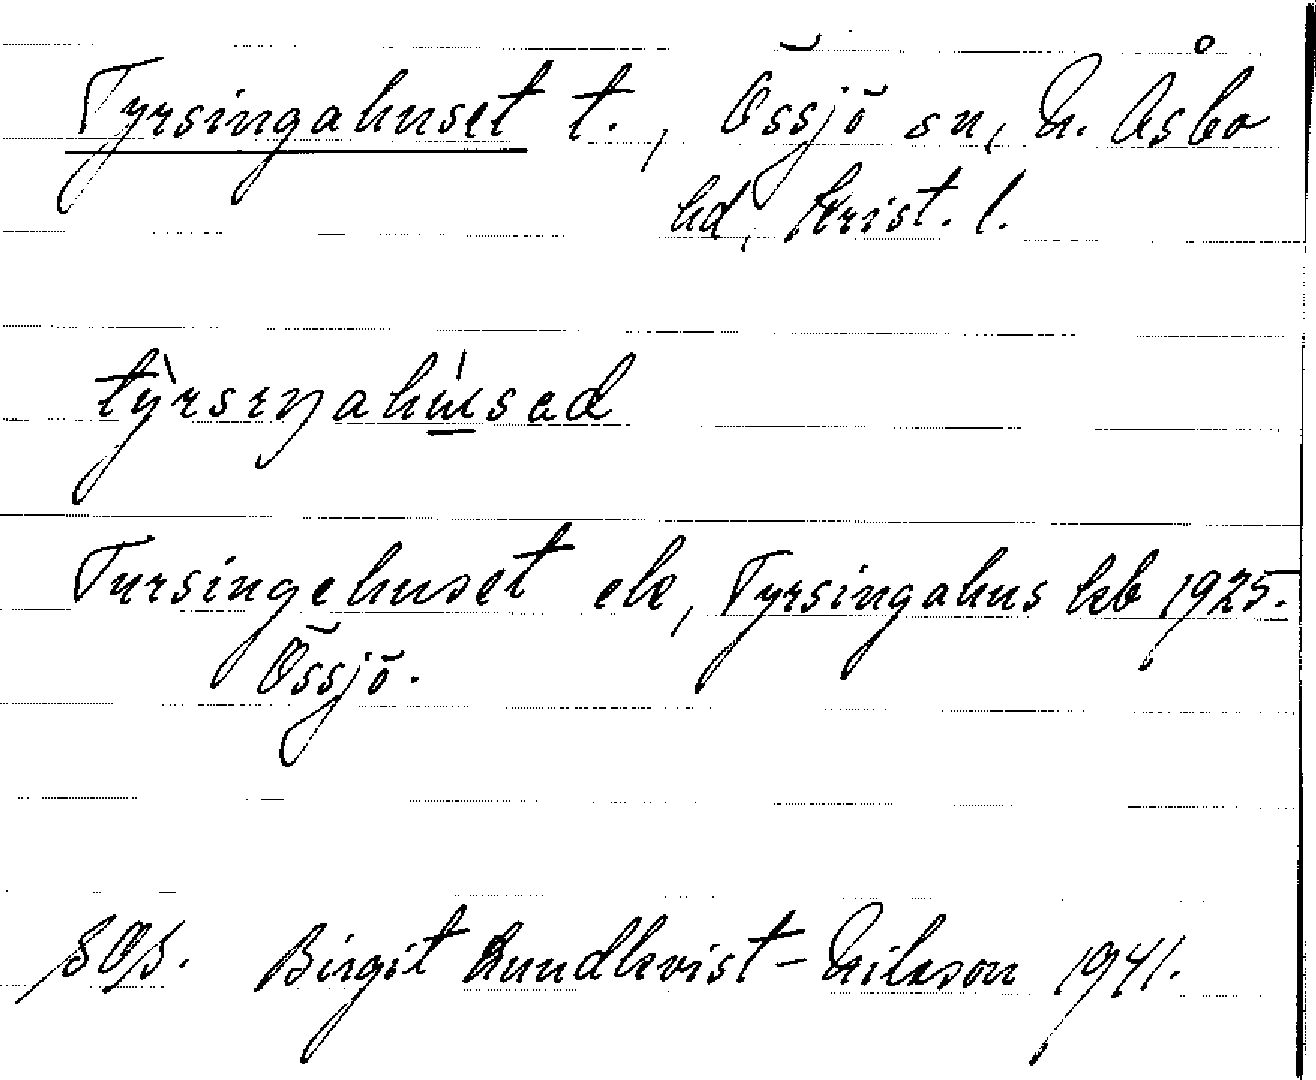 Tyrsingahuset t., Össjö sn, N. Åsbo
hd, Krist. l.
tỳrsɪŋahú̲sad
Tursingehuset ek, Tyrsingahus kb 1925.
Össjö.
SOS. Birgit Lundkvist-Nilsson 1941.